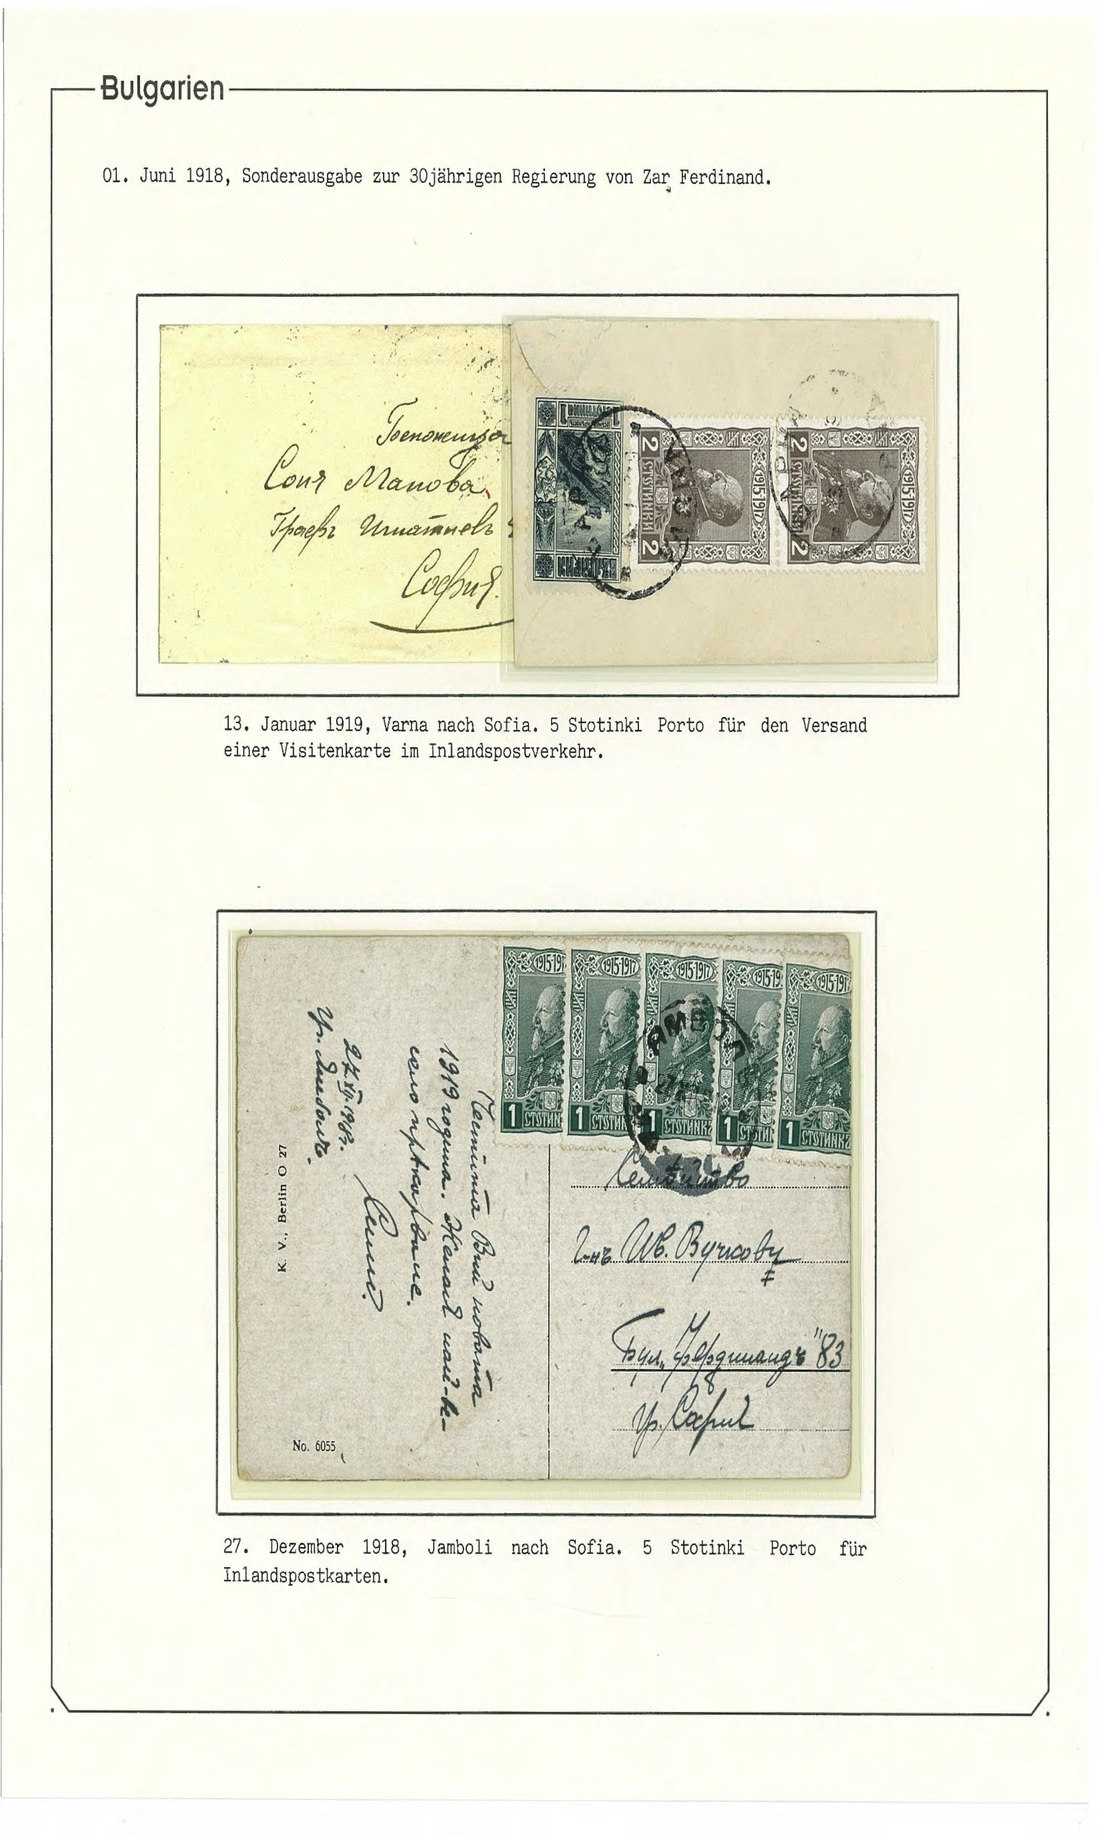 Bulgarien
01. Juni 1918, Sonderausgabe zur 30jährigen Regierung von Zar Ferdinand.
Госпожица
Соня Манова
Графъ Игнатиевъ
София.
1 СТОТИНКА
БЪЛГАРИЯ
ВАРНА
2 СТОТИНКИ 2
1915-1917
2 СТОТИНКИ 2
1915-1917
ВАРНА
13. Januar 1919, Varna nach Sofia. 5 Stotinki Porto für den Versand
einer Visitenkarte im Inlandspostverkehr.
1915-191
1915-1917
1915-1917
1915-19
1915-191
1 СТОТИН
1 СТОТИНК
1 СТОТИНК
1 СТОТИ
1 СТОТИНК
ЯМБОЛ
Честита Вий новата
1919 година. Желая най-ве-
село прѣкарване.
27.XII.1918.
гр. Ямболъ.
K. V., Berlin O 27
No. 6055
Семейство
Г-нъ Ив. Вучкову
Бул. „Фердинандъ" 83
гр. София
27. Dezember 1918, Jamboli nach Sofia. 5 Stotinki Porto für
Inlandspostkarten.